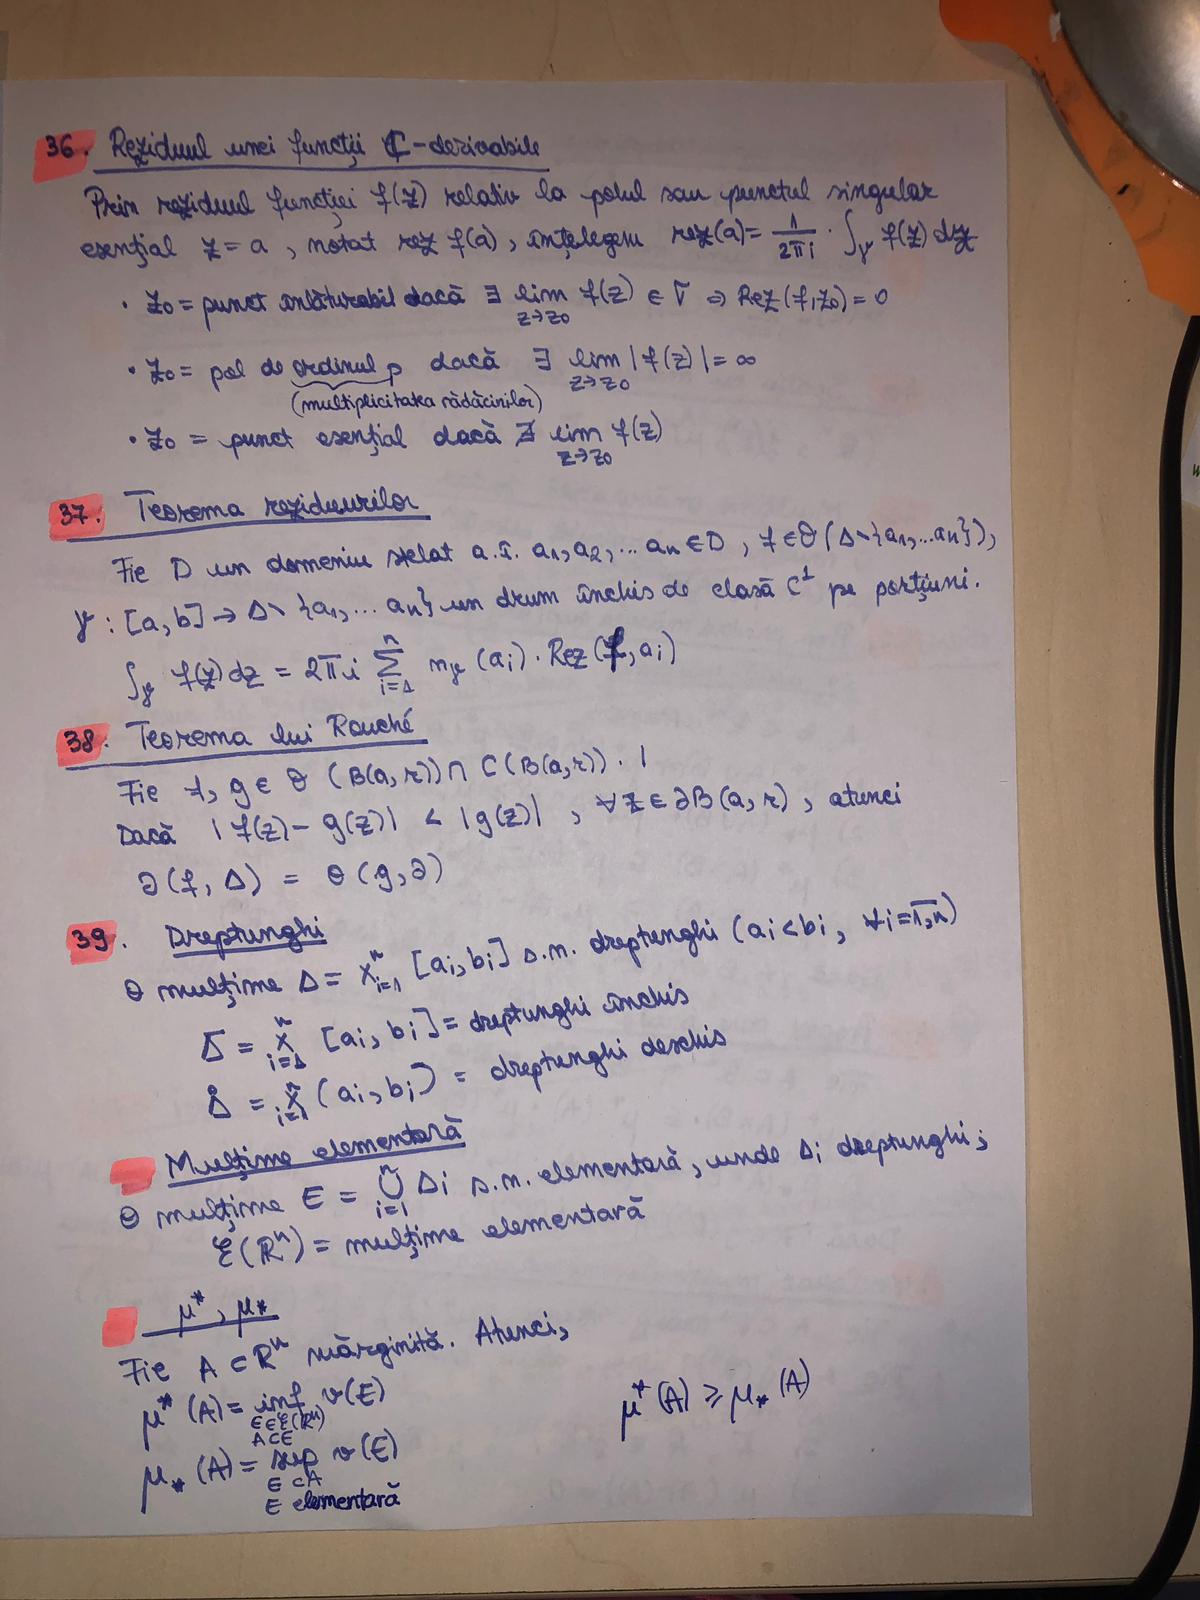 36. Reziduul unei funcții ℂ-derivabile
Prin reziduul funcției f(z) relativ la polul sau punctul singular
esențial z = a , notat rez f(a) , înțelegem rez(a) = 1/2πi · ∫γ f(z) dz
• z₀ = punct înlăturabil dacă ∃ lim z→z₀ f(z) ∈ Γ ⇒ Rez(f,z₀) = 0
• z₀ = pol de ordinul p dacă ∃ lim z→z₀ |f(z)| = ∞
(multiplicitatea rădăcinilor)
• z₀ = punct esențial dacă ∄ lim z→z₀ f(z)
37. Teorema reziduurilor
Fie D un domeniu stelat a.î. a₁, a₂, ... aₙ ∈ D , f ∈ O(Δ∖{a₁,...aₙ}),
γ : [a,b] → Δ∖{a₁,... aₙ} un drum închis de clasă C¹ pe porțiuni.
∫γ f(z) dz = 2πi ∑ᵢ₌₁ⁿ nγ (aᵢ) · Rez (f, aᵢ)
38. Teorema lui Rouché
Fie f, g ∈ O (B(a,r)) ∩ C(B(a,r)) . |
Dacă |f(z) - g(z)| < |g(z)| , ∀ z ∈ ∂B(a,r) , atunci
∂(f, Δ) = θ (g, ∂)
39. Dreptunghi
O mulțime Δ = Xᵢ₌₁ⁿ [aᵢ, bᵢ] s.n. dreptunghi (aᵢ < bᵢ , ∀i = 1,n)
Δ̅ = Xᵢ₌₁ⁿ [aᵢ, bᵢ] = dreptunghi închis
Δ̊ = Xᵢ₌₁ⁿ (aᵢ, bᵢ) = dreptunghi deschis
Mulțime elementară
O mulțime E = ∪ᵢ₌₁ⁿ Δᵢ s.n. elementară, unde Δᵢ dreptunghi;
ℰ(ℝⁿ) = mulțime elementară
μ*, μ⁎
Fie A ⊂ ℝⁿ mărginită. Atunci,
μ* (A) = inf v(E)
E∈ℰ(ℝⁿ)
A⊂E
μ* (A) ≥ μ⁎ (A)
μ⁎ (A) = sup v(E)
E ⊂ A
E elementară